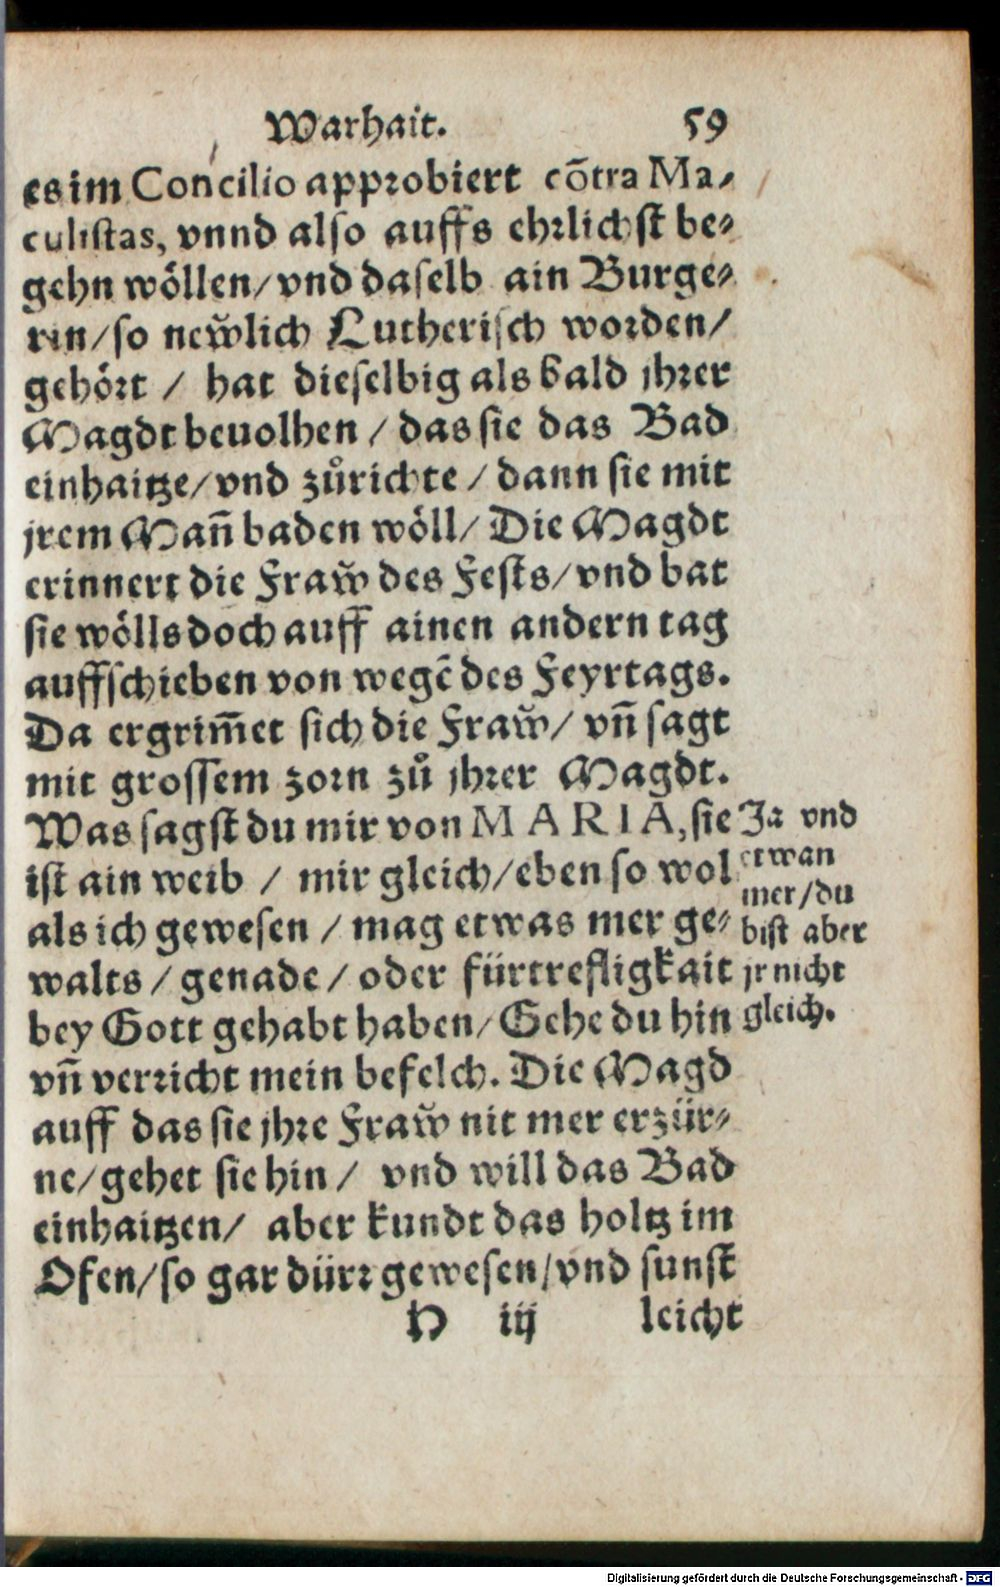 Warhait. 59
es im Concilio approbiert cõtra Ma-
culistas, vnnd also auffs ehrlichst be-
gehn wöllen/ vnd daselb ain Burge-
rin/ so new̃lich Lutherisch worden/
gehört / hat dieselbig als bald jhrer
Magdt beuolhen / das sie das Bad
einhaitze/ vnd zůrichte / dann sie mit
jrem Mañ baden wöll/ Die Magdt
erinnert die Fraw̃ des Fests/ vnd bat
sie wölls doch auff ainen andern tag
auffschieben von wegẽ des Feyrtags.
Da ergrim̃et sich die Fraw̃/ vñ sagt
mit grossem zorn zů jhrer Magdt.
Was sagst du mir von MARIA, sie
ist ain weib / mir gleich/ eben so wol
als ich gewesen / mag etwas mer ge-
walts / genade / oder fürtrefligkait
bey Gott gehabt haben/ Gehe du hin
vñ verricht mein befelch. Die Magd
auff das sie jhre Fraw̃ nit mer erzür-
ne/ gehet sie hin / vnd will das Bad
einhaitzen/ aber kundt das holtz im
Ofen/ so gar dürr gewesen/ vnd sunst
H iij leicht
Ja vnd
etwan
mer/ du
bist aber
jr nicht
gleich.
Digitalisierung gefördert durch die Deutsche Forschungsgemeinschaft - DFG